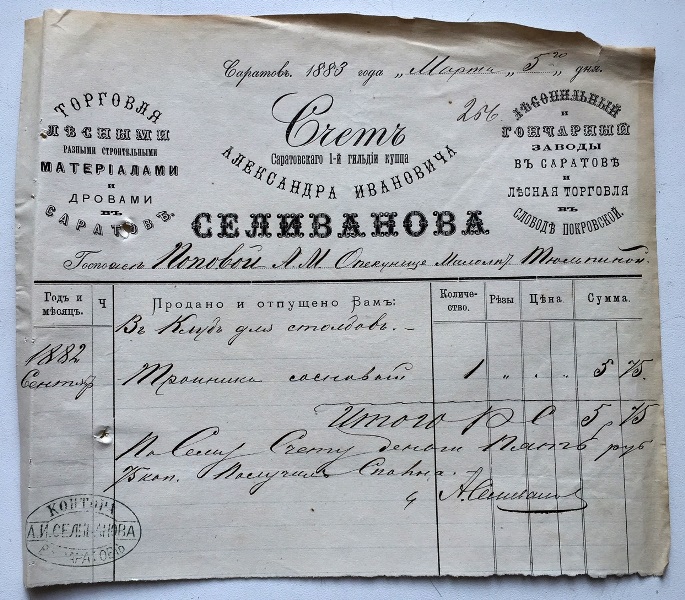 Саратовъ. 1883 года „Марта „5го" дня.
256.
ТОРГОВЛЯ
ЛѢСНЫМИ
РАЗНЫМИ СТРОИТЕЛЬНЫМИ
МАТЕРІАЛАМИ
И
ДРОВАМИ
ВЪ
САРАТОВѢ.
Счетъ
Саратовскаго 1-й гильдіи купца
АЛЕКСАНДРА ИВАНОВИЧА
СЕЛИВАНОВА.
ЛѢСОПИЛЬНЫЙ
И
ГОНЧАРНЫЙ
ЗАВОДЫ
ВЪ САРАТОВѢ
И
ЛѢСНАЯ ТОРГОВЛЯ
ВЪ
СЛОБОДѢ ПОКРОВСКОЙ.
Поповой А М Опекунще Тюльпиной.
Годъ и мѣсяцъ. Ч Продано и отпущено Вамъ: Количество. Рѣзы Цѣна Сумма.
Въ Клубъ для столбовъ. –
1882
Сентяб Тройника сосновый 1 „ „ „ 5 75.
Итого Р С 5 75
По Сему Счету деньги Пять руб
75 коп. Получилъ Сполна.
А Селивановъ
КОНТОРА
А.И.СЕЛИВАНОВА
САРАТОВЪ